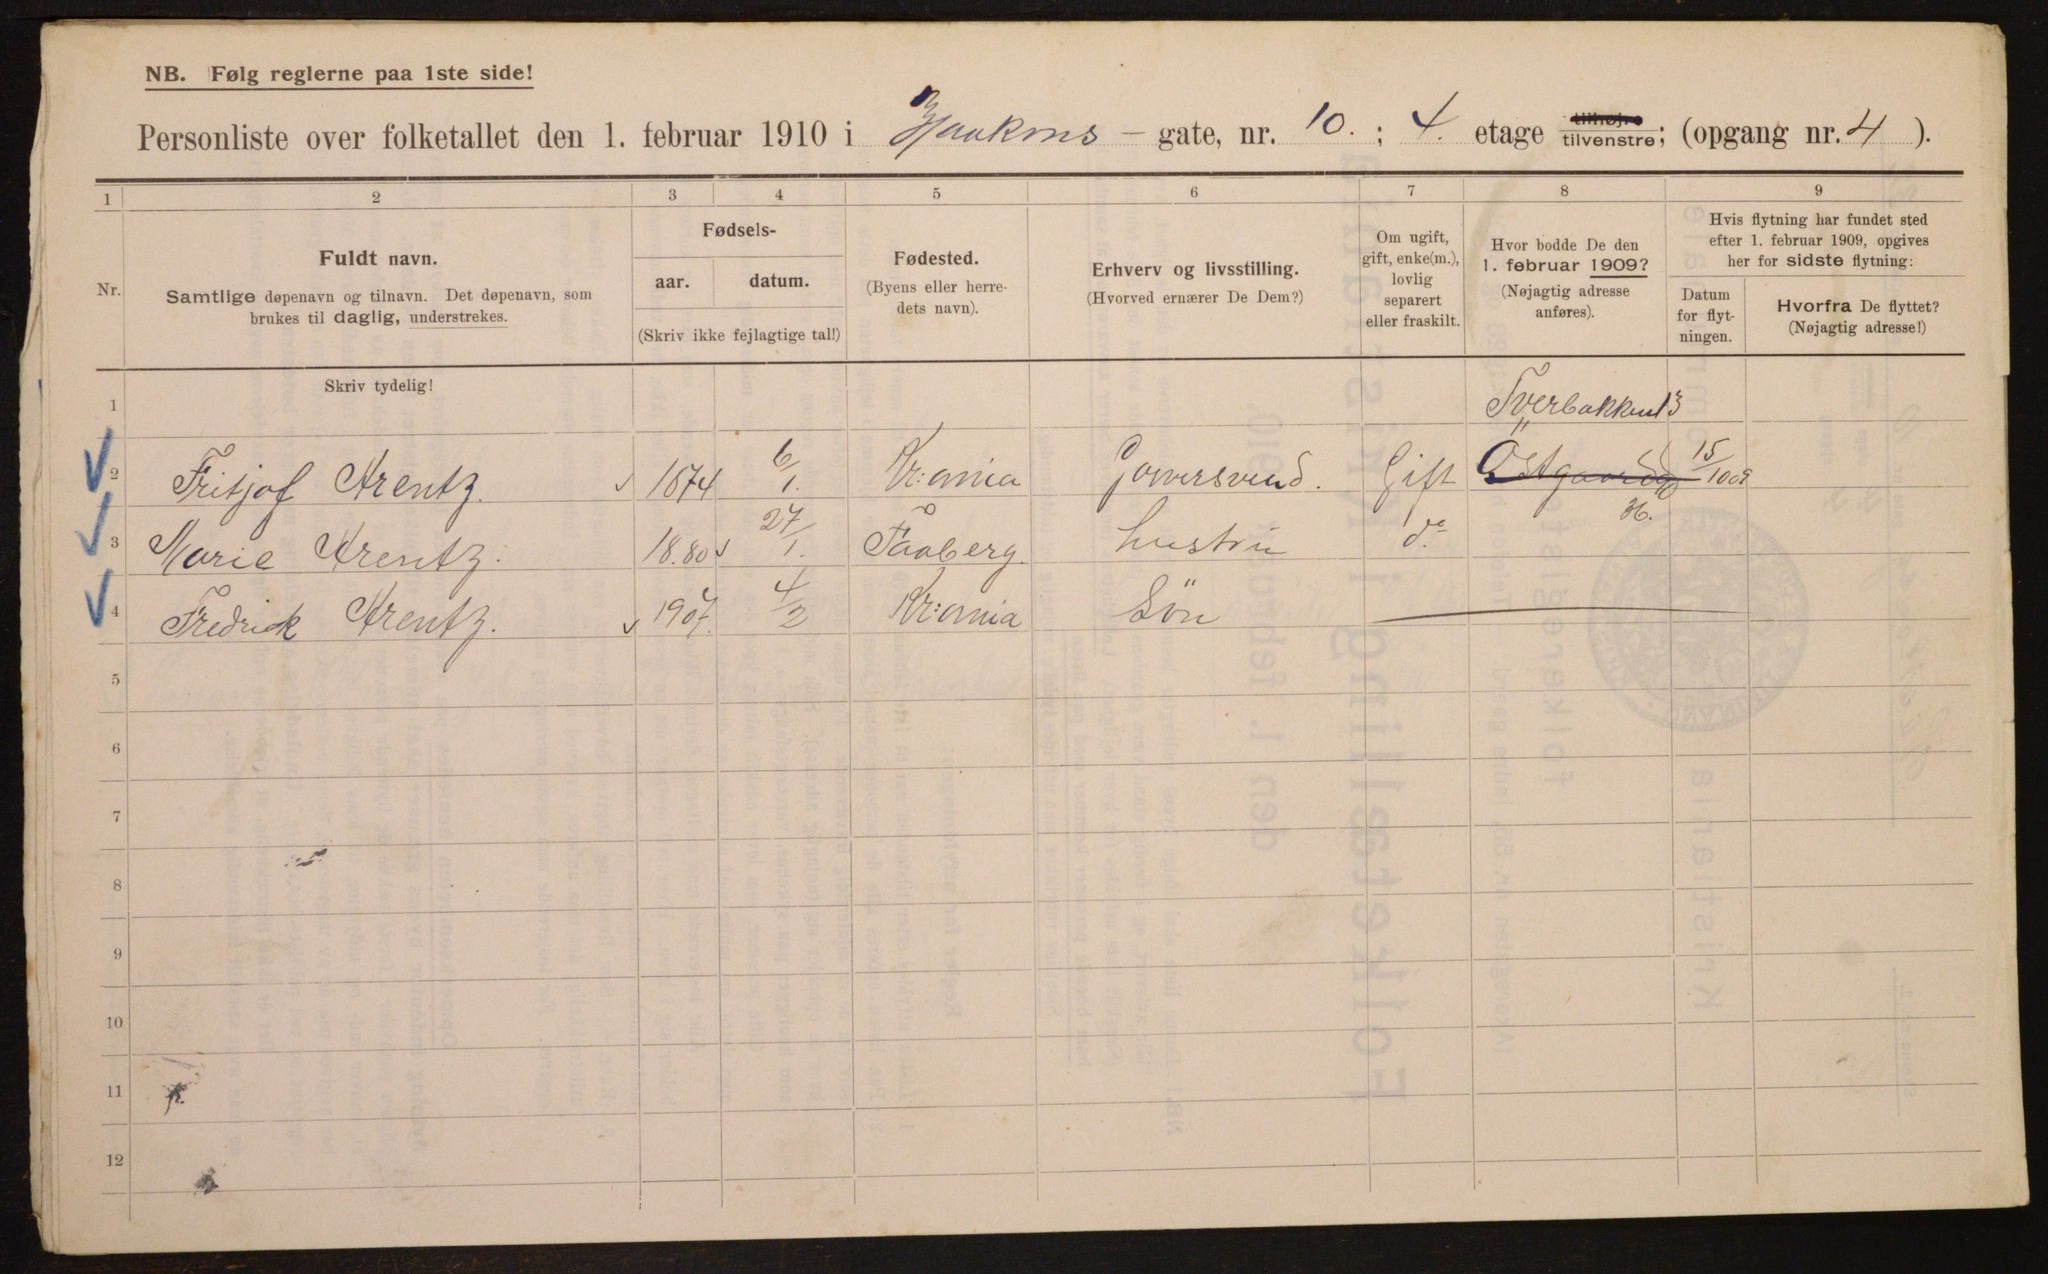 NB. Følg reglerne paa 1ste side!
Personliste over folketallet den 1. februar 1910 i Haakons – gate, nr. 10. ; 4. etage tilhøjre tilvenstre; (opgang nr. 4 ).
1 2 3 4 5 6 7 8 9
Nr.
Fuldt navn.
Samtlige døpenavn og tilnavn. Det døpenavn, som
brukes til daglig, understrekes.
Fødsels-
aar. datum.
(Skriv ikke fejlagtige tal!)
Fødested.
(Byens eller herre-
dets navn).
Erhverv og livsstilling.
(Hvorved ernærer De Dem?)
Om ugift,
gift, enke(m.),
lovlig
separert
eller fraskilt.
Hvor bodde De den
1. februar 1909?
(Nøjagtig adresse
anføres).
Hvis flytning har fundet sted
efter 1. februar 1909, opgives
her for sidste flytning:
Datum
for flyt-
ningen.
Hvorfra De flyttet?
(Nøjagtig adresse!)
Skriv tydelig!
1 Tverbakken 13
2 Fritjof Arentz. 1874 6/1. Kr:ania Gift Östgaardsgd 36. 15/10 09
3 Marie Arentz. 18.80 27/1. Faaberg. hustru do
4 Fredrick Arentz. 1907. 4/2 Kr:ania Sön
5
6
7
8
9
10
11
12